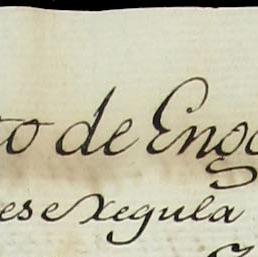 to de Eng
ese Xegula